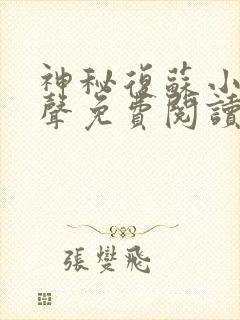 神秘復蘇小
聲免費閱讀
張燮飛